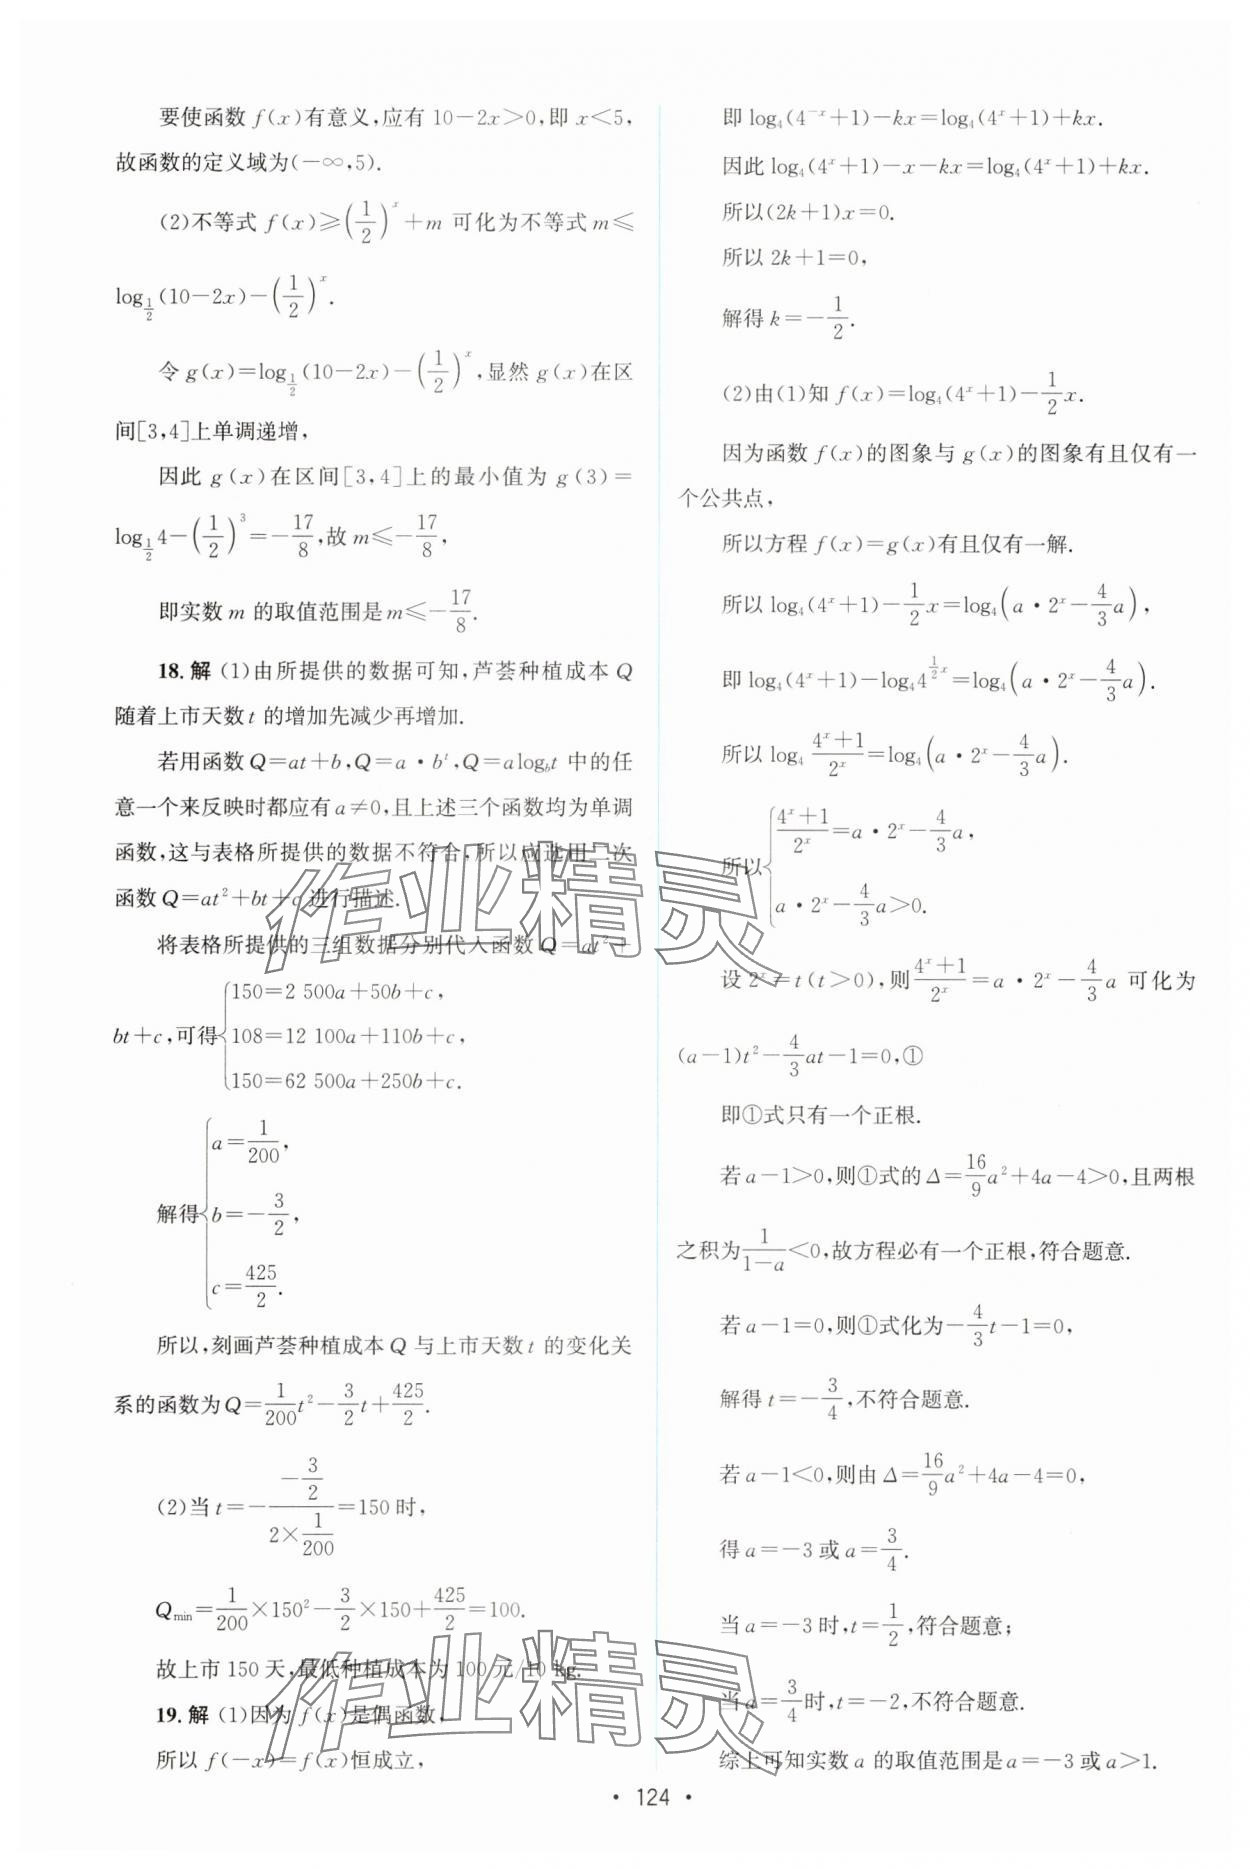 要使函数 f(x)有意义,应有 10-2x>0,即 x<5,
故函数的定义域为(-∞,5).
(2)不等式 f(x)≥(1/2)^x+m 可化为不等式 m≤
log_{1/2}(10-2x)-(1/2)^x.
令 g(x)=log_{1/2}(10-2x)-(1/2)^x,显然 g(x)在区
间[3,4]上单调递增,
因此 g(x)在区间[3,4]上的最小值为 g(3)=
log_{1/2}4-(1/2)^3=-17/8,故 m≤-17/8,
即实数 m 的取值范围是 m≤-17/8.
18.解 (1)由所提供的数据可知,芦荟种植成本 Q
随着上市天数 t 的增加先减少再增加.
若用函数 Q=at+b,Q=a·b^t,Q=alog_b t 中的任
意一个来反映时都应有 a≠0,且上述三个函数均为单调
函数,这与表格所提供的数据不符合,所以应选用二次
函数 Q=at²+bt+c 进行描述.
将表格所提供的三组数据分别代入函数 Q=at²+
bt+c,可得{150=2 500a+50b+c,
108=12 100a+110b+c,
150=62 500a+250b+c.
解得{a=1/200,
b=-3/2,
c=425/2.
所以,刻画芦荟种植成本 Q 与上市天数 t 的变化关
系的函数为 Q=1/200t²-3/2t+425/2.
(2)当 t=-(-3/2)/(2×1/200)=150 时,
Q_min=1/200×150²-3/2×150+425/2=100.
故上市 150 天,最低种植成本为 100 元/10 kg.
19.解 (1)因为 f(x)是偶函数,
所以 f(-x)=f(x)恒成立,
即 log₄(4^{-x}+1)-kx=log₄(4^x+1)+kx.
因此 log₄(4^x+1)-x-kx=log₄(4^x+1)+kx.
所以(2k+1)x=0.
所以 2k+1=0,
解得 k=-1/2.
(2)由(1)知 f(x)=log₄(4^x+1)-1/2x.
因为函数 f(x)的图象与 g(x)的图象有且仅有一
个公共点,
所以方程 f(x)=g(x)有且仅有一解.
所以 log₄(4^x+1)-1/2x=log₄(a·2^x-4/3a),
即 log₄(4^x+1)-log₄4^{1/2x}=log₄(a·2^x-4/3a).
所以 log₄(4^x+1)/2^x=log₄(a·2^x-4/3a).
所以{(4^x+1)/2^x=a·2^x-4/3a,
a·2^x-4/3a>0.
设 2^x=t(t>0),则(4^x+1)/2^x=a·2^x-4/3a 可化为
(a-1)t²-4/3at-1=0,①
即①式只有一个正根.
若 a-1>0,则①式的 Δ=16/9a²+4a-4>0,且两根
之积为1/(1-a)<0,故方程必有一个正根,符合题意.
若 a-1=0,则①式化为-4/3t-1=0,
解得 t=-3/4,不符合题意.
若 a-1<0,则由 Δ=16/9a²+4a-4=0,
得 a=-3 或 a=3/4.
当 a=-3 时,t=1/2,符合题意;
当 a=3/4时,t=-2,不符合题意.
综上可知实数 a 的取值范围是 a=-3 或 a>1.
·124·
作业精灵
作业精灵